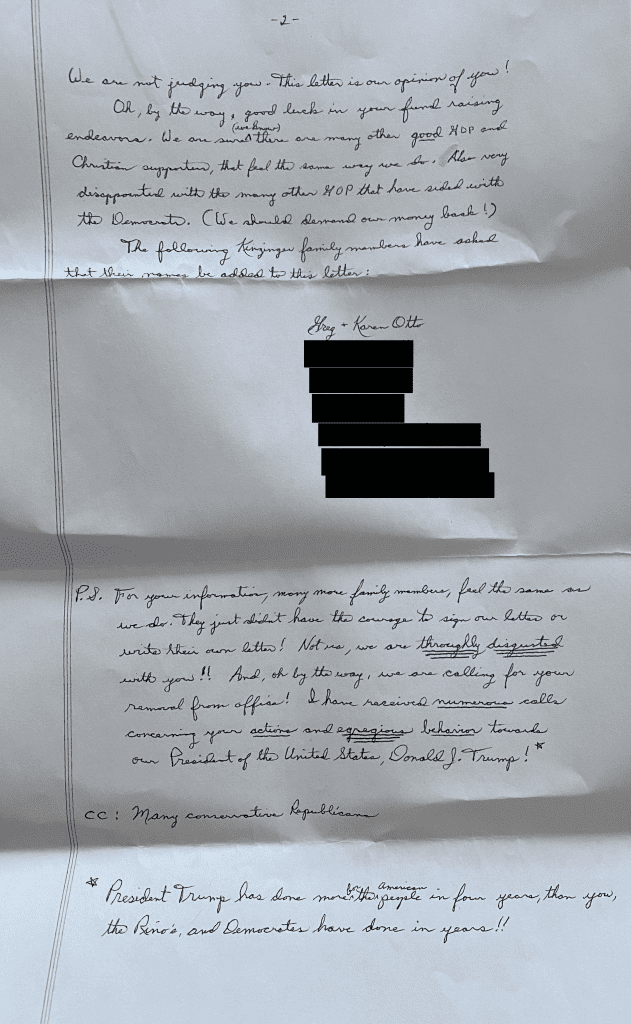 -2-
We are not judging you. This letter is our opinion of you!
Oh, by the way, good luck in your fund raising
endeavors. We are sure (we know) there are many other good GOP and
Christian supporters, that feel the same way we do. Also very
disappointed with the many other GOP that have sided with
the Democrats. (We should demand our money back!)
The following Kinzinger family members have asked
that their names be added to this letter:
Greg + Karen Otto
P.S. For your information, many more family members, feel the same as
we do. They just didn't have the courage to sign our letter or
write their own letter! Not us, we are throughly disgusted
with you!! And, oh by the way, we are calling for your
removal from office! I have received numerous calls
concerning your actions and egregious behavior towards
our President of the United States, Donald J. Trump! *
cc: Many conservative Republicans
* President Trump has done more for the American people in four years, than you,
the Rino's, and Democrates have done in years!!